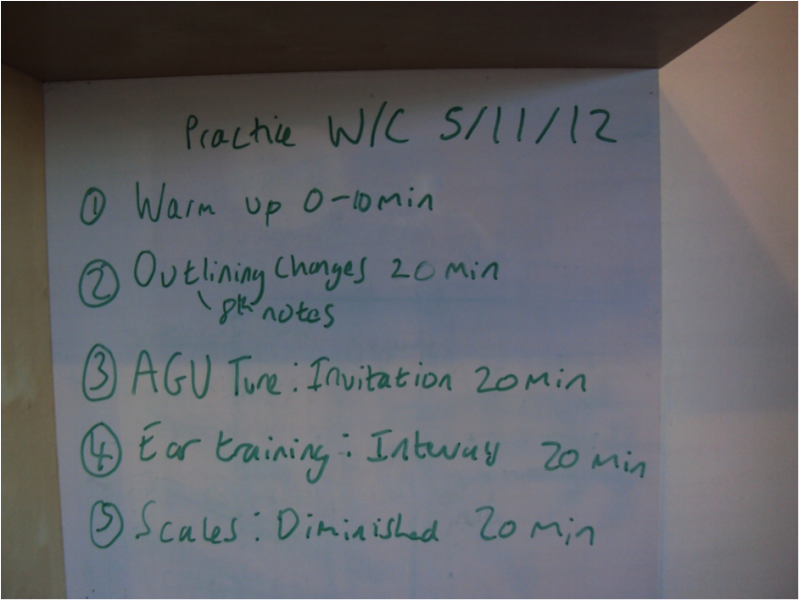 Practice W/C 5/11/12
① Warm up 0-10min
② Outlining Changes 20 min
8th notes
③ AGU Tune: Invitation 20 min
④ Ear training: Intervals 20 min
⑤ Scales: Diminished 20 min